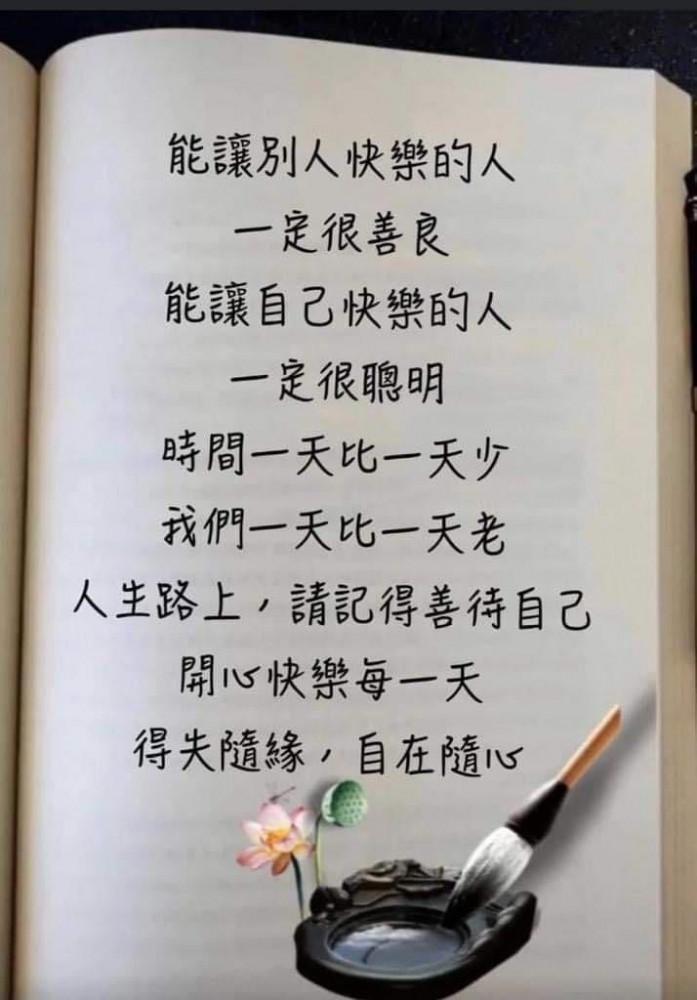 能讓別人快樂的人
一定很善良
能讓自己快樂的人
一定很聰明
時間一天比一天少
我們一天比一天老
人生路上，請記得善待自己
開心快樂每一天
得失隨緣，自在隨心